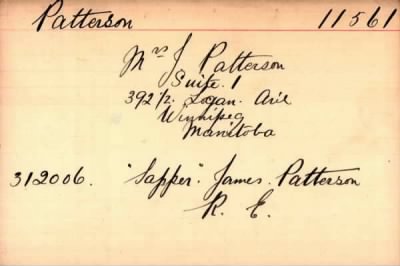 Patterson 11561
Mrs J Patterson
Suite. 1
392 1/2. Logan. Ave
Winnipeg
Manitoba
312006. "Sapper". James. Patterson
R. E.